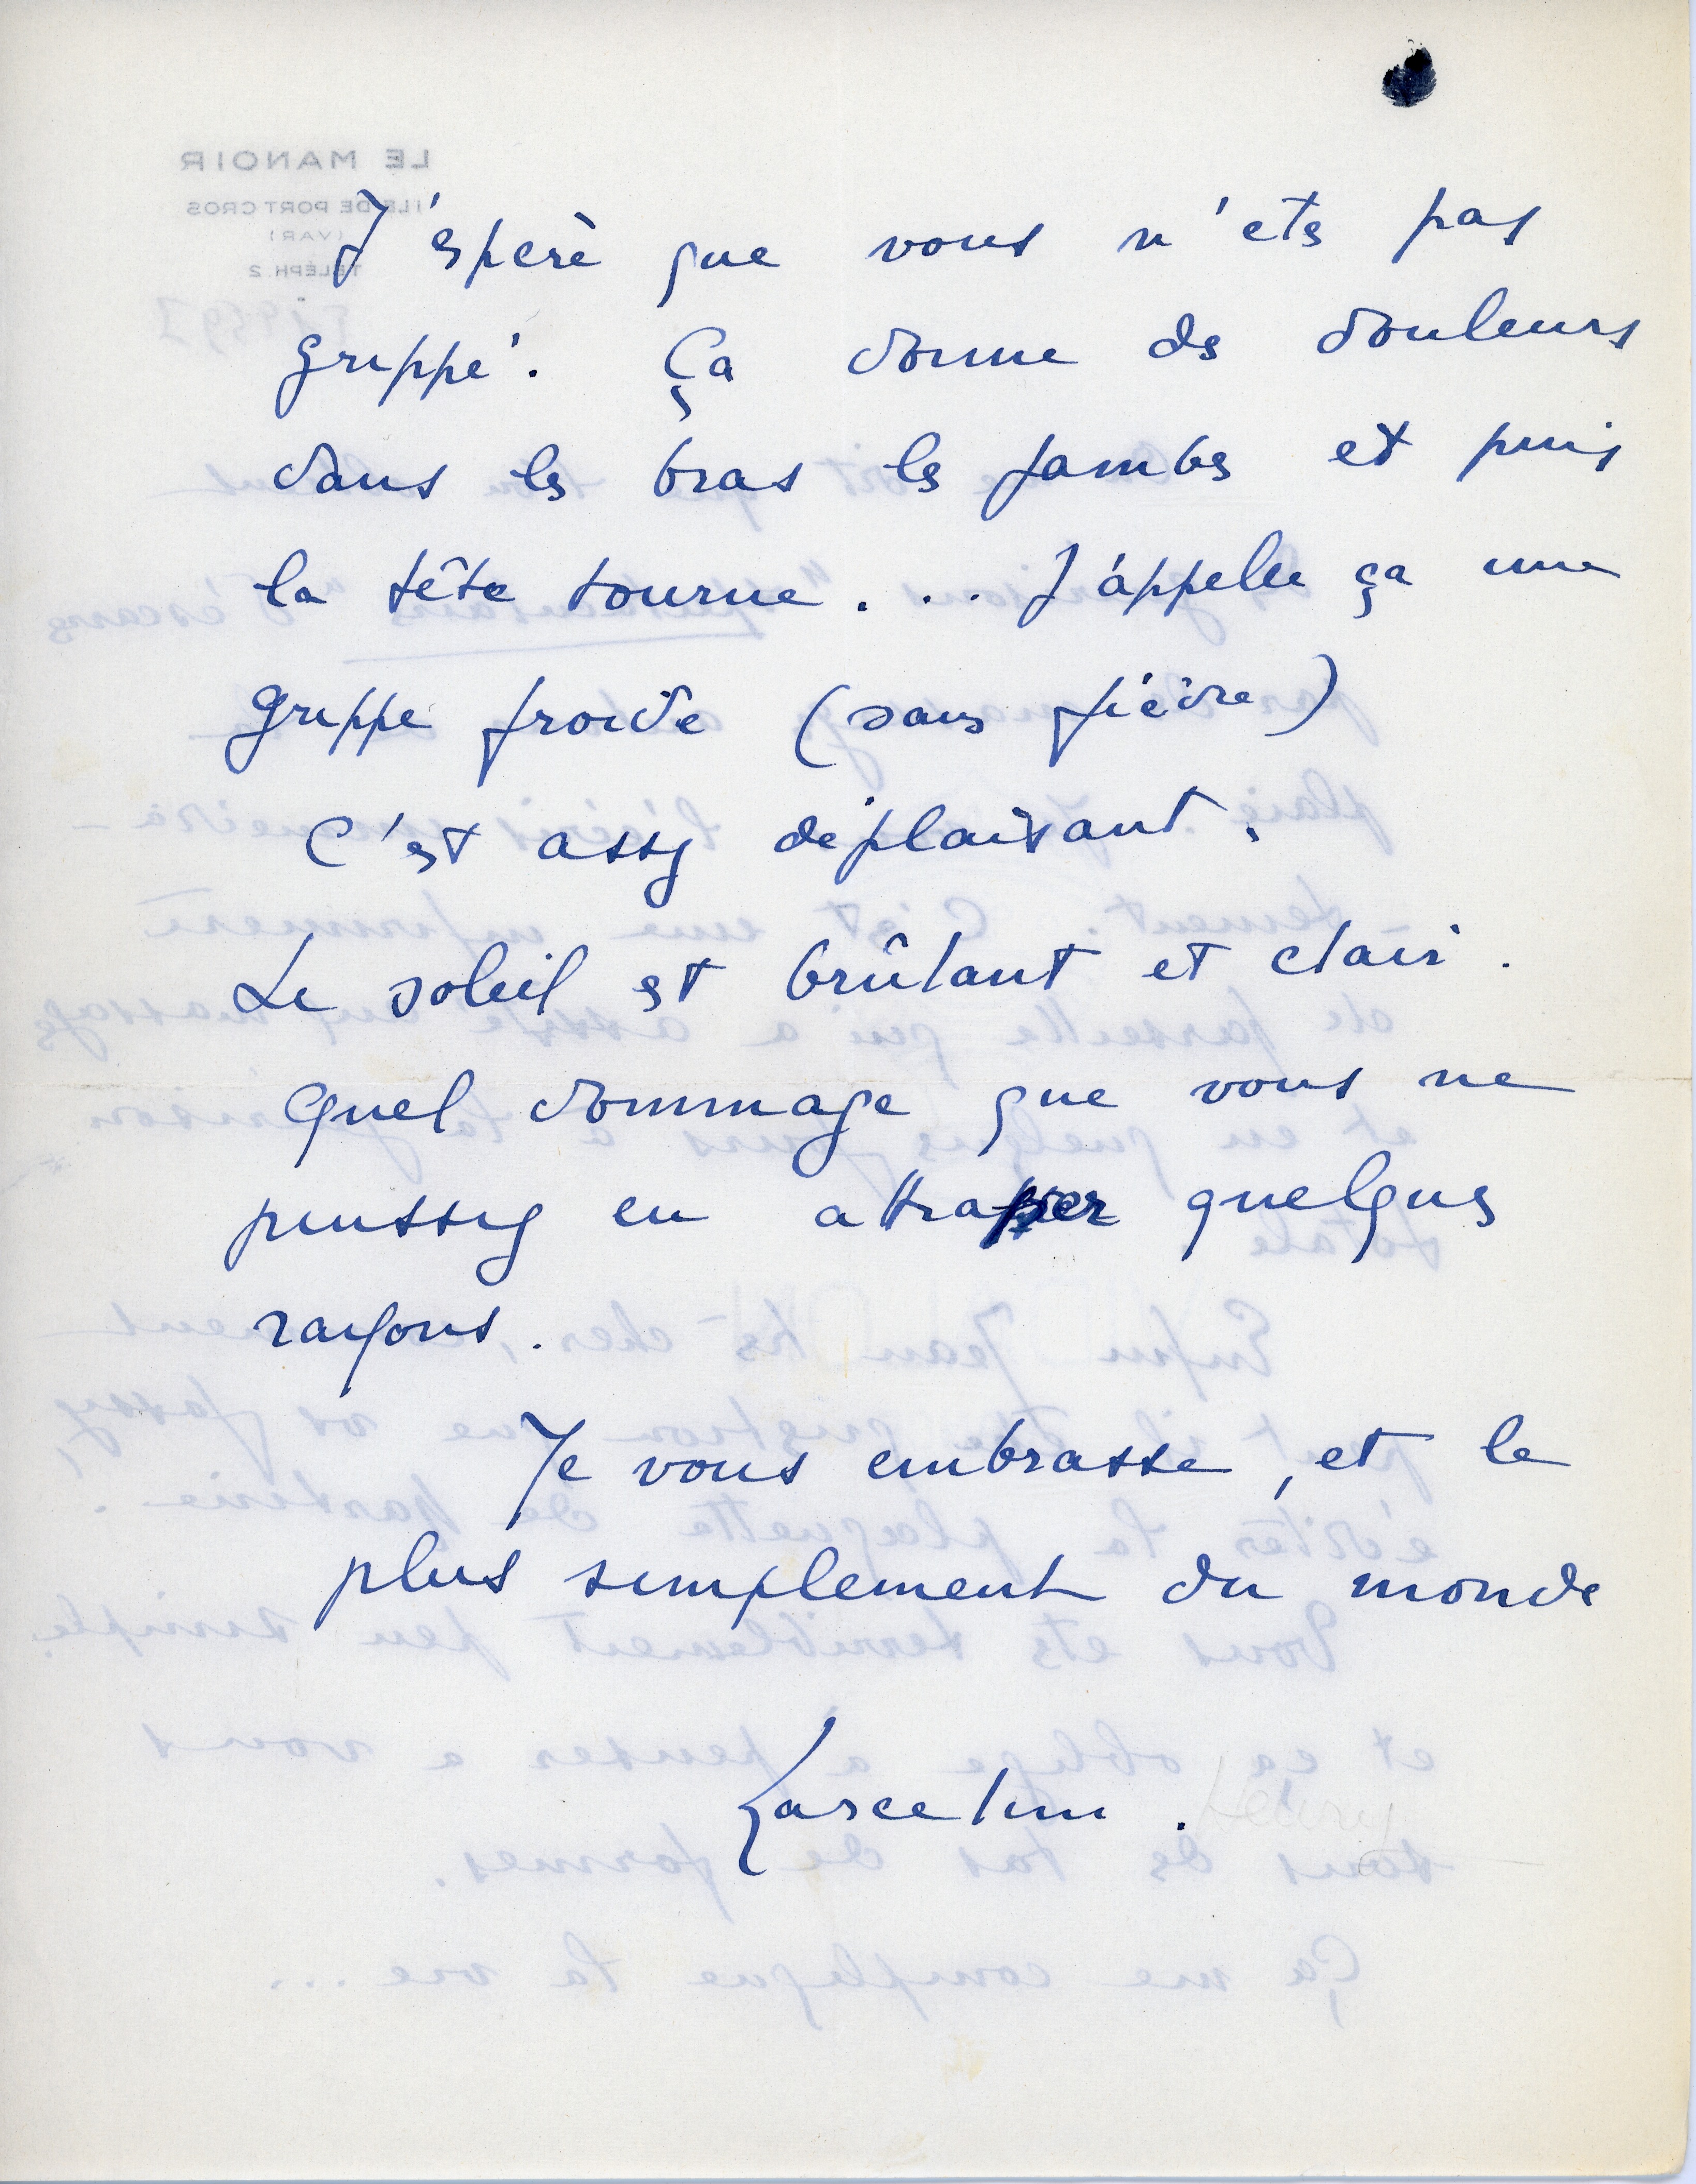 J'espère que vous n'etes pas
grippé. Ça donne des douleurs
dans les bras les jambes et puis
la tête tourne... J'appelle ça une
grippe froide (sans fièvre)
C'est assez déplaisant.
Le soleil est brûlant et clair.
Quel dommage que vous ne
puissiez en attraper quelques
rayons.
Je vous embrasse, et le
plus simplement du monde
Marcelin.
Henry